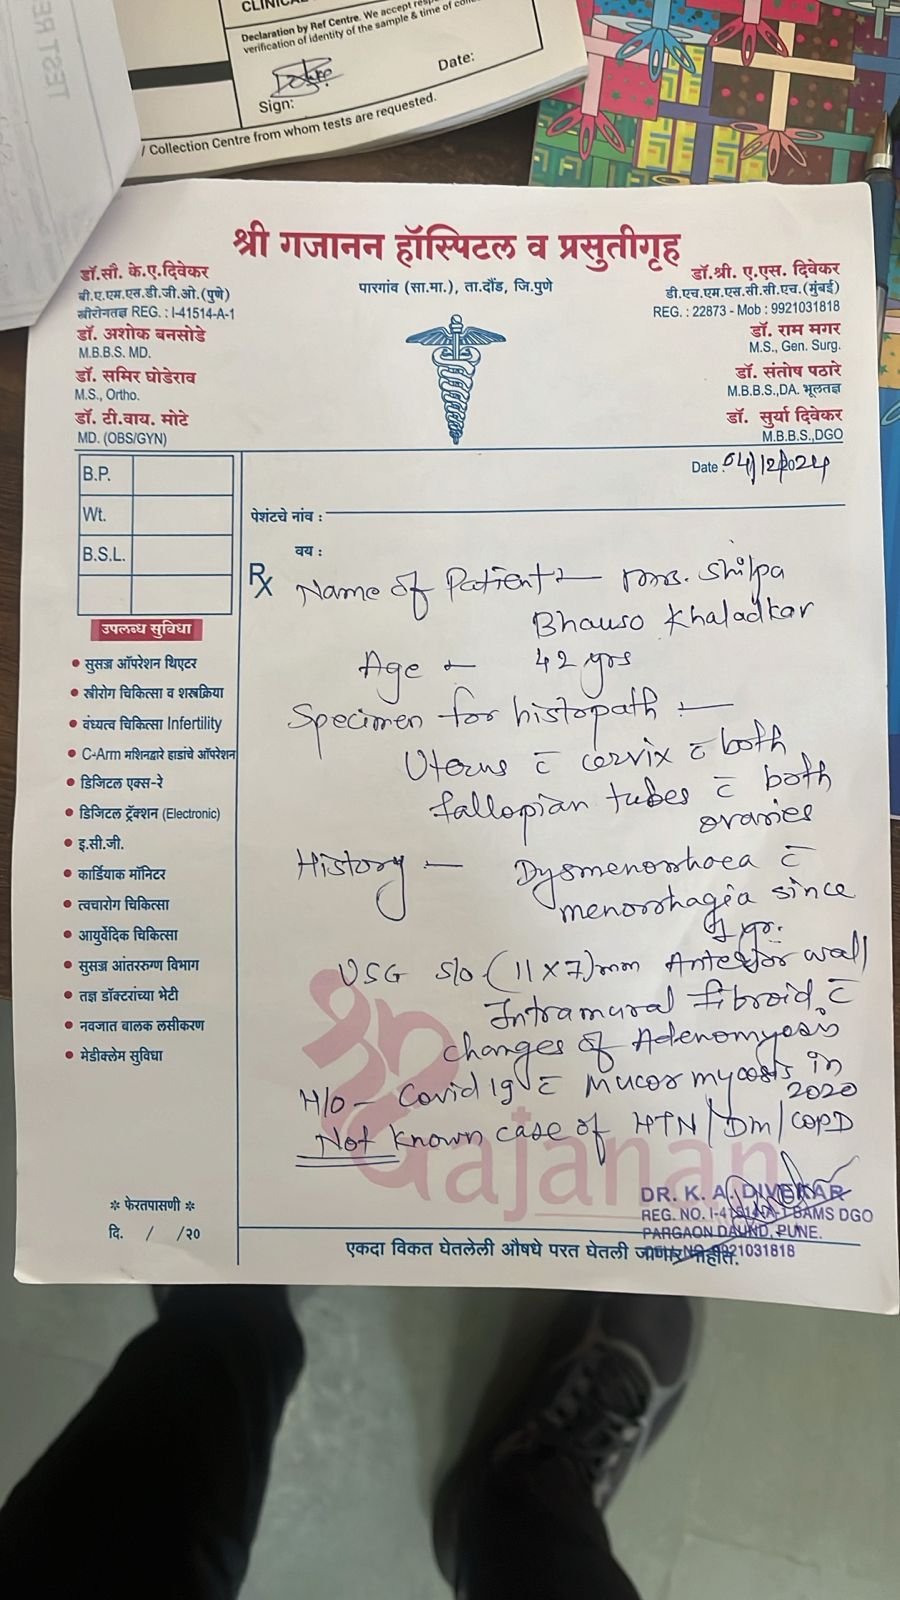 TEST
CLINICAL
Declaration by Ref Centre. We accept
verification of identity of the sample & time of
Sign:
Date:
/ Collection Centre from whom tests are requested.
श्री गजानन हॉस्पिटल व प्रसुतीगृह
पारगांव (सा.मा.), ता.दौंड, जि.पुणे
डॉ.सौ. के.ए.दिवेकर
बी.ए.एम.एस.डी.जी.ओ.(पुणे)
स्त्रीरोगतज्ञ REG. : I-41514-A-1
डॉ. अशोक बनसोडे
M.B.B.S. MD.
डॉ. समिर घोडेराव
M.S., Ortho.
डॉ. टी.वाय. मोटे
MD. (OBS/GYN)
डॉ.श्री. ए.एस. दिवेकर
डी.एच.एम.एस.सी.सी.एच.(मुंबई)
REG. : 22873 - Mob : 9921031818
डॉ. राम मगर
M.S., Gen. Surg.
डॉ. संतोष पठारे
M.B.B.S.,DA. भूलतज्ञ
डॉ. सुर्या दिवेकर
M.B.B.S.,DGO
Date : 04/12/2024
B.P.
Wt.
B.S.L.
पेशंटचे नांव :
वय :
Rx
Name of Patient :- Mrs. Shilpa
Bhauso Khaladkar
Age :- 42 yrs
Specimen for histopath :-
Uterus c̄ cervix c̄ both
fallopian tubes c̄ both
ovaries
History - Dysmenorrhoea c̄
menorrhagia since
1 yr.
USG s/o - (11 x 7) mm Anterior wall
Intramural fibroid c̄
changes of Adenomyosis
H/o - Covid 19 c̄ Mucormycosis in
2020
Not known case of HTN/DM/COPD
उपलब्ध सुविधा
• सुसज्ज ऑपरेशन थिएटर
• स्त्रीरोग चिकित्सा व शस्त्रक्रिया
• वंध्यत्व चिकित्सा Infertility
• C-Arm मशिनद्वारे हाडांचे ऑपरेशन
• डिजिटल एक्स-रे
• डिजिटल ट्रॅक्शन (Electronic)
• इ.सी.जी.
• कार्डियाक मॉनिटर
• त्वचारोग चिकित्सा
• आयुर्वेदिक चिकित्सा
• सुसज्ज आंतररुग्ण विभाग
• तज्ञ डॉक्टरांच्या भेटी
• नवजात बालक लसीकरण
• मेडीक्लेम सुविधा
श्री
Gajanan
* फेरतपासणी *
दि. / /२०
DR. K. A. DIVEKAR
REG. NO. I-41514-A-1 BAMS DGO
PARGAON DAUND, PUNE.
9921031818
एकदा विकत घेतलेली औषधे परत घेतली जाणार नाहीत.